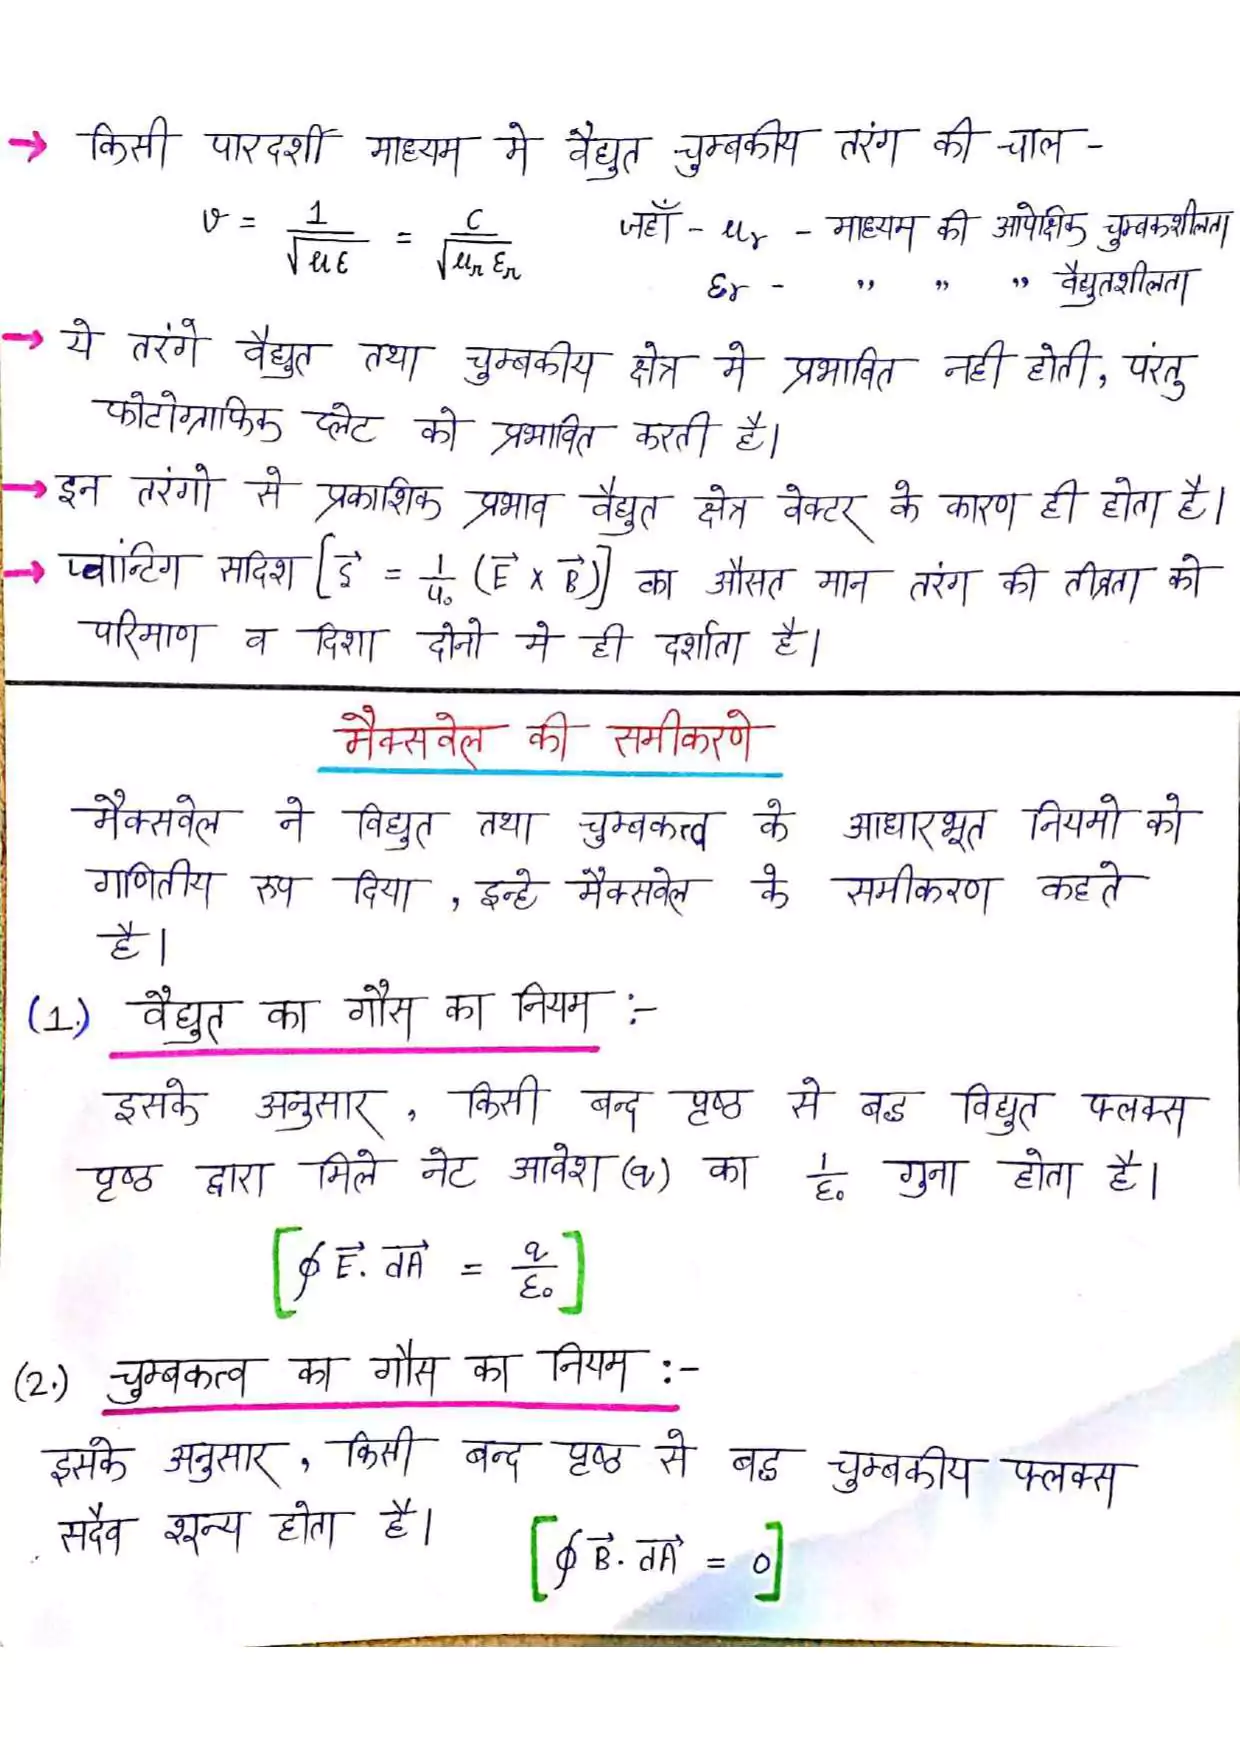 → किसी पारदर्शी माध्यम मे वैद्युत चुम्बकीय तरंग की चाल -
v = 1/√με = c/√μr εr जहाँ - μr - माध्यम की आपेक्षिक चुम्बकशीलता
εr - " " " वैद्युतशीलता
→ ये तरंगे वैद्युत तथा चुम्बकीय क्षेत्र मे प्रभावित नही होती, परंतु
फोटोग्राफिक प्लेट को प्रभावित करती है।
→ इन तरंगो से प्रकाशिक प्रभाव वैद्युत क्षेत्र वेक्टर के कारण ही होता है।
→ प्वांन्टिग सदिश [S⃗ = 1/μ₀ (E⃗ x B⃗)] का औसत मान तरंग की तीव्रता को
परिमाण व दिशा दोनो मे ही दर्शाता है।
मैक्सवेल की समीकरणे
मैक्सवेल ने विद्युत तथा चुम्बकत्व के आधारभूत नियमो को
गणितीय रुप दिया , इन्हे मैक्सवेल के समीकरण कहते
है।
(1.) वैद्युत का गौस का नियम :-
इसके अनुसार , किसी बन्द पृष्ठ से बद्ध विद्युत फ्लक्स
पृष्ठ द्वारा मिले नेट आवेश (q) का 1/ε₀ गुना होता है।
[∮ E⃗. dA⃗ = q/ε₀]
(2.) चुम्बकत्व का गौस का नियम :-
इसके अनुसार , किसी बन्द पृष्ठ से बद्ध चुम्बकीय फ्लक्स
सदैव शून्य होता है।
[∮ B⃗. dA⃗ = 0]